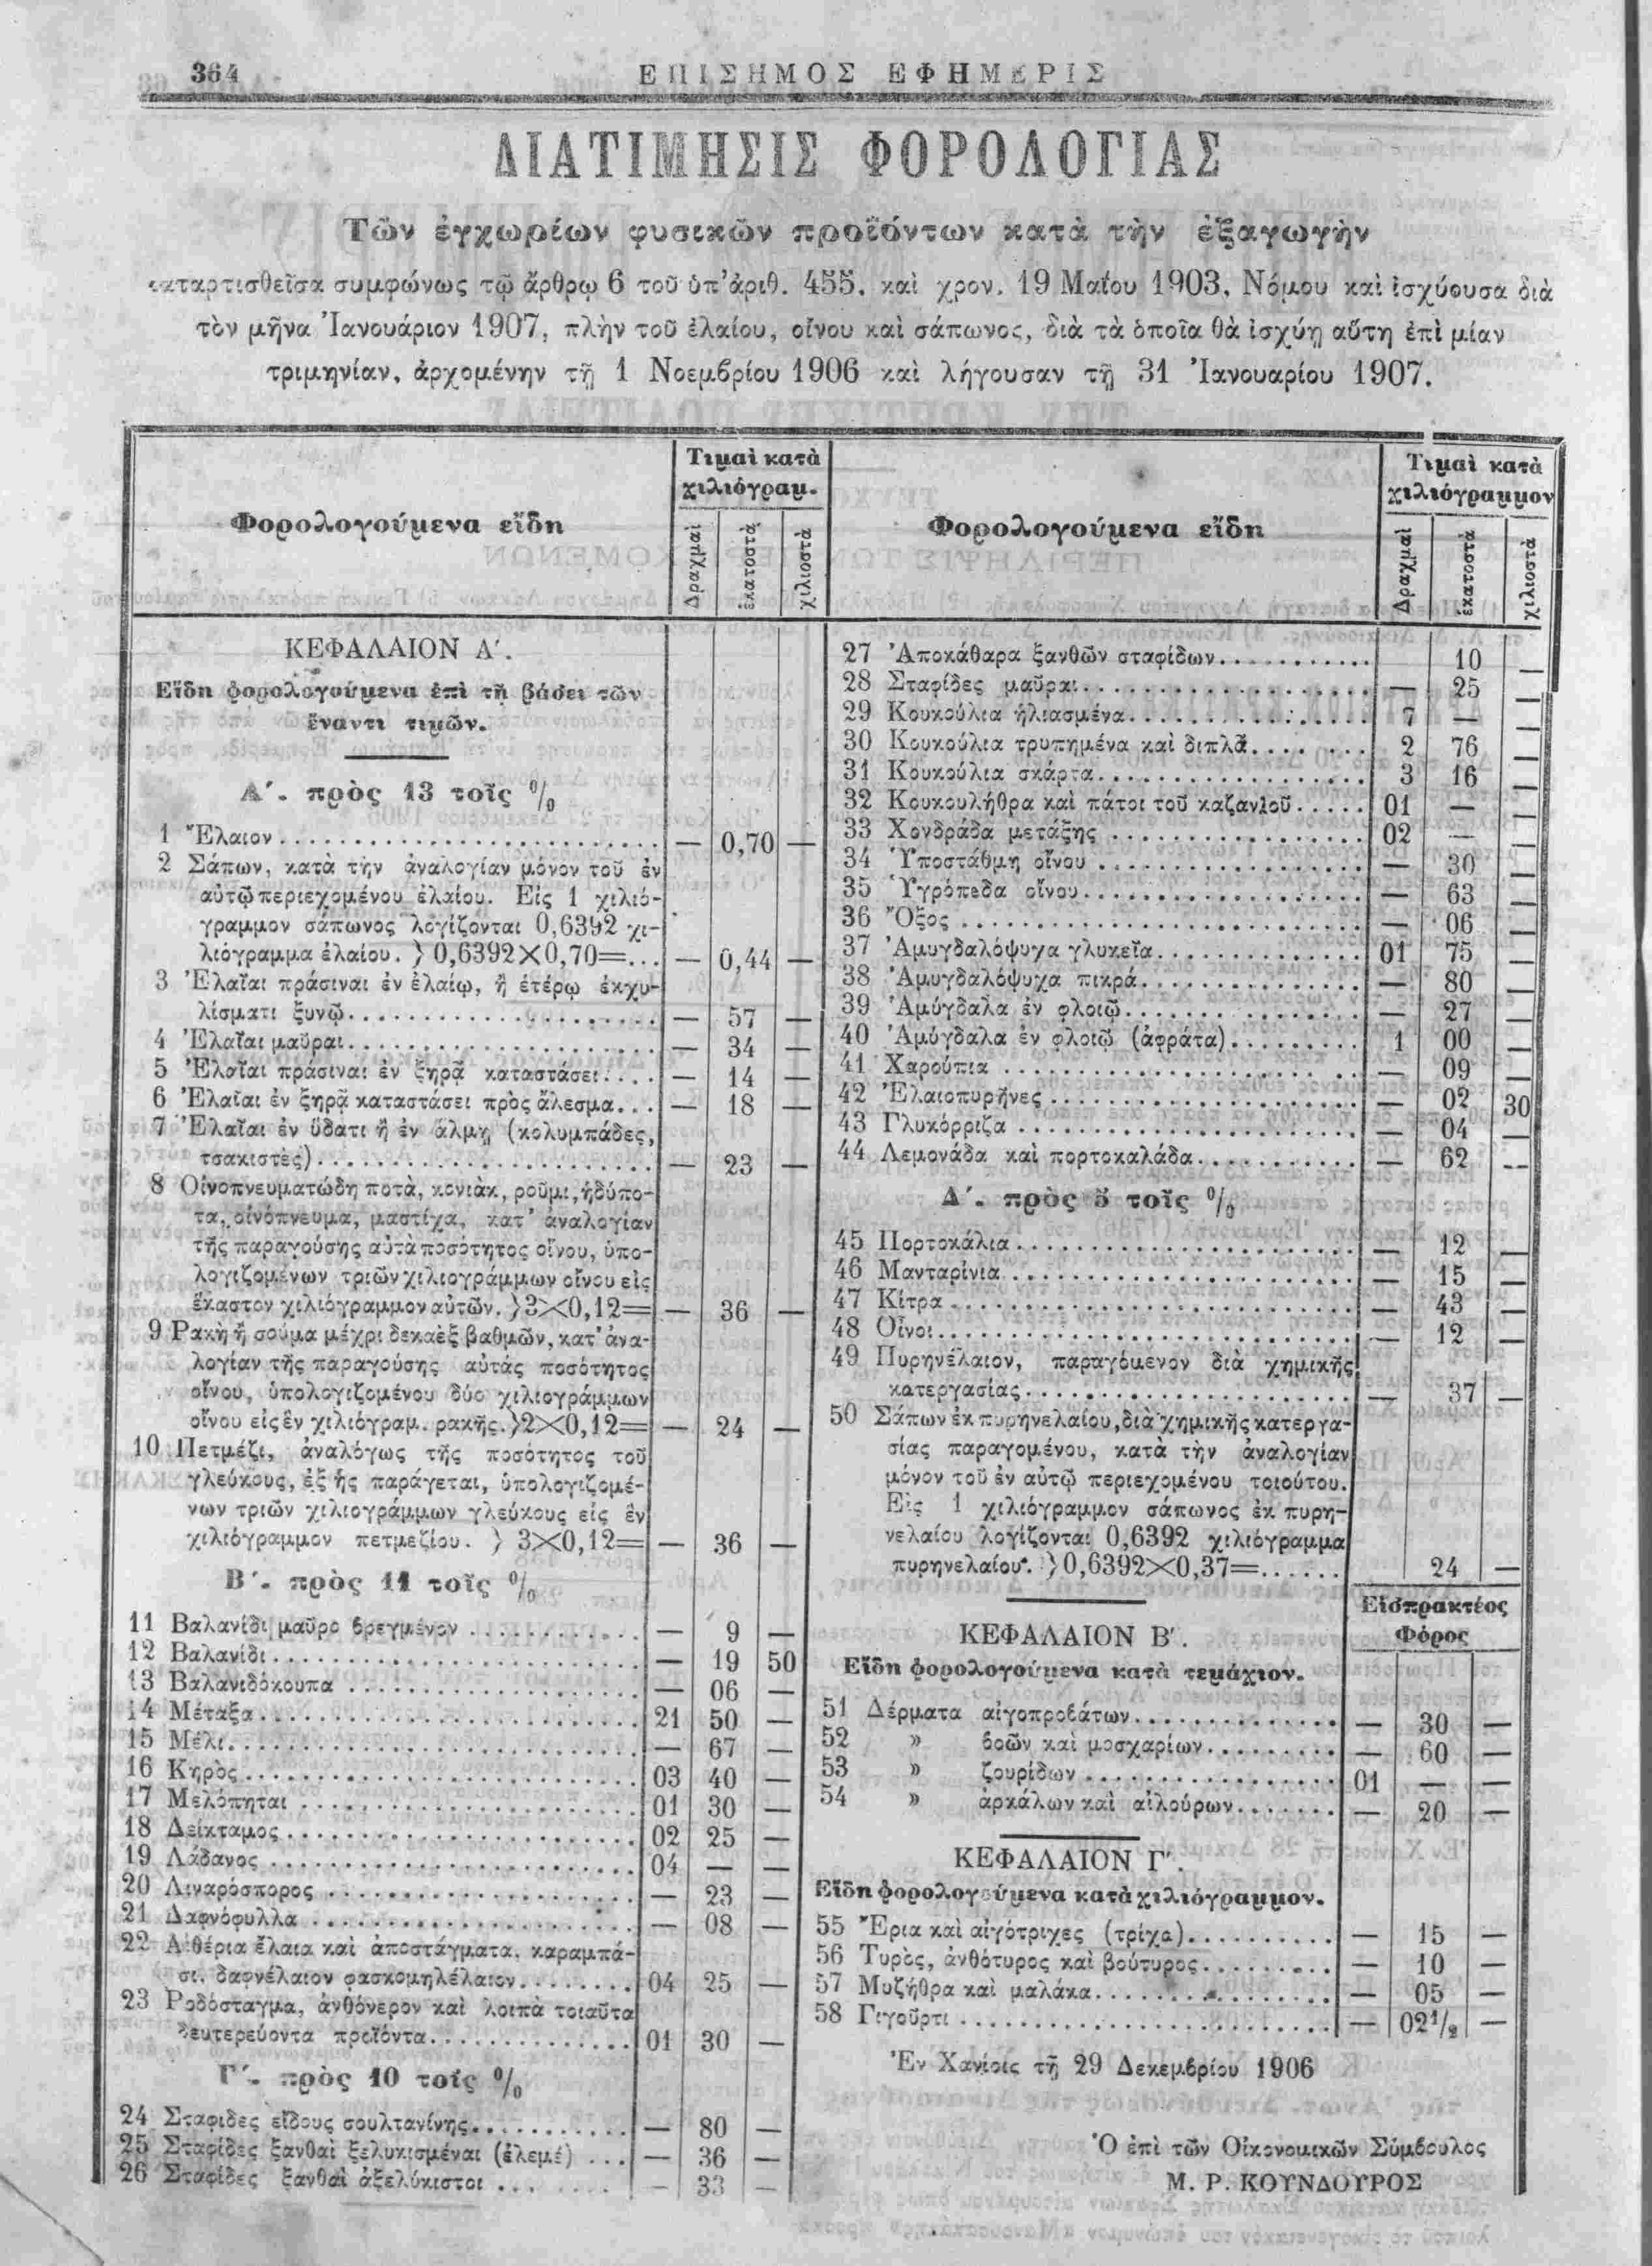 364
ΕΠΙΣΗΜΟΣ ΕΦΗΜΕΡΙΣ
ΔΙΑΤΙΜΗΣΙΣ ΦΟΡΟΛΟΓΙΑΣ
Τῶν ἐγχωρίων φυσικῶν προϊόντων κατὰ τὴν ἐξαγωγὴν
καταρτισθεῖσα συμφώνως τῷ ἄρθρῳ 6 τοῦ ὑπ' ἀριθ. 455. καὶ χρον. 19 Μαΐου 1903. Νόμου καὶ ἰσχύουσα διὰ
τὸν μῆνα Ἰανουάριον 1907, πλὴν τοῦ ἐλαίου, οἴνου καὶ σάπωνος, διὰ τὰ ὁποῖα θὰ ἰσχύῃ αὕτη ἐπὶ μίαν
τριμηνίαν, ἀρχομένην τῇ 1 Νοεμβρίου 1906 καὶ λήγουσαν τῇ 31 Ἰανουαρίου 1907.
Φορολογούμενα εἴδη
Τιμαὶ κατὰ
χιλιόγραμ.
Δραχμαὶ
ἑκατοστὰ
χιλιοστὰ
ΚΕΦΑΛΑΙΟΝ Α΄.
Εἴδη φορολογούμενα ἐπὶ τῇ βάσει τῶν
ἔναντι τιμῶν.
Α΄. πρὸς 13 τοῖς %
1 Ἔλαιον — 0,70 —
2 Σάπων, κατὰ τὴν ἀναλογίαν μόνον τοῦ ἐν
αὐτῷ περιεχομένου ἐλαίου. Εἰς 1 χιλιό-
γραμμον σάπωνος λογίζονται 0,6392 χι-
λιόγραμμα ἐλαίου. } 0,6392×0,70= — 0,44 —
3 Ἐλαῖαι πράσιναι ἐν ἐλαίῳ, ἢ ἑτέρῳ ἐκχυ-
λίσματι ξυνῷ — 57 —
4 Ἐλαῖαι μαῦραι — 34 —
5 Ἐλαῖαι πράσιναι ἐν ξηρᾷ καταστάσει — 14 —
6 Ἐλαῖαι ἐν ξηρᾷ καταστάσει πρὸς ἄλεσμα — 18 —
7 Ἐλαῖαι ἐν ὕδατι ἢ ἐν ἅλμῃ (κολυμπάδες,
τσακιστὲς) — 23 —
8 Οἰνοπνευματώδη ποτὰ, κονιὰκ, ροῦμι, ἡδύπο-
τα, οἰνόπνευμα, μαστίχα, κατ' ἀναλογίαν
τῆς παραγούσης αὐτὰ ποσότητος οἴνου, ὑπο-
λογιζομένων τριῶν χιλιογράμμων οἴνου εἰς
ἕκαστον χιλιόγραμμον αὐτῶν. } 3×0,12= — 36 —
9 Ρακὴ ἢ σοῦμα μέχρι δεκαὲξ βαθμῶν, κατ' ἀνα-
λογίαν τῆς παραγούσης αὐτὰς ποσότητος
οἴνου, ὑπολογιζομένου δύο χιλιογράμμων
οἴνου εἰς ἓν χιλιόγραμ. ρακῆς. } 2×0,12= — 24 —
10 Πετμέζι, ἀναλόγως τῆς ποσότητος τοῦ
γλεύκους, ἐξ ἧς παράγεται, ὑπολογιζομέ-
νων τριῶν χιλιογράμμων γλεύκους εἰς ἓν
χιλιόγραμμον πετμεζίου. } 3×0,12= — 36 —
Β΄. πρὸς 11 τοῖς %
11 Βαλανίδι μαῦρο βρεγμένον — 9 —
12 Βαλανίδι — 19 50
13 Βαλανιδόκουπα — 06 —
14 Μέταξα 21 50 —
15 Μέλι — 67 —
16 Κηρὸς 03 40 —
17 Μελόπηται 01 30 —
18 Δείκταμος 02 25 —
19 Λάδανος 04 — —
20 Λιναρόσπορος — 23 —
21 Δαφνόφυλλα — 08 —
22 Αἰθέρια ἔλαια καὶ ἀποστάγματα, καραμπά-
σι, δαφνέλαιον φασκομηλέλαιον 04 25 —
23 Ροδόσταγμα, ἀνθόνερον καὶ λοιπὰ τοιαῦτα
δευτερεύοντα προϊόντα 01 30 —
Γ΄. πρὸς 10 τοῖς %
24 Σταφιδες εἴδους σουλτανίνης — 80 —
25 Σταφίδες ξανθαὶ ξελυκισμέναι (ἐλεμέ) — 36 —
26 Σταφίδες ξανθαὶ ἀξελύκιστοι — 33 —
Φορολογούμενα εἴδη
Τιμαὶ κατὰ
χιλιόγραμμον
Δραχμαὶ
ἑκατοστὰ
χιλιοστὰ
27 Ἀποκάθαρα ξανθῶν σταφίδων 10 —
28 Σταφίδες μαῦραι — 25 —
29 Κουκούλια ἡλιασμένα 7 — —
30 Κουκούλια τρυπημένα καὶ διπλᾶ 2 76 —
31 Κουκούλια σκάρτα 3 16 —
32 Κουκουλήθρα καὶ πάτοι τοῦ καζανιοῦ 01 — —
33 Χονδράδα μετάξης 02 — —
34 Ὑποστάθμη οἴνου — 30 —
35 Ὑγρόπεδα οἴνου — 63 —
36 Ὄξος — 06 —
37 Ἀμυγδαλόψυχα γλυκεῖα 01 75 —
38 Ἀμυγδαλόψυχα πικρά — 80 —
39 Ἀμύγδαλα ἐν φλοιῷ — 27 —
40 Ἀμύγδαλα ἐν φλοιῷ (ἀφράτα) 1 00 —
41 Χαρούπια — 09 —
42 Ἐλαιοπυρῆνες — 02 30
43 Γλυκόρριζα — 04 —
44 Λεμονάδα καὶ πορτοκαλάδα — 62 --
Δ΄. πρὸς 5 τοῖς %
45 Πορτοκάλια — 12 —
46 Μανταρίνια — 15 —
47 Κίτρα — 43 —
48 Οἶνοι — 12 —
49 Πυρηνέλαιον, παραγόμενον διὰ χημικῆς
κατεργασίας — 37 —
50 Σάπων ἐκ πυρηνελαίου, διὰ χημικῆς κατεργα-
σίας παραγομένου, κατὰ τὴν ἀναλογίαν
μόνον τοῦ ἐν αὐτῷ περιεχομένου τοιούτου.
Εἰς 1 χιλιόγραμμον σάπωνος ἐκ πυρη-
νελαίου λογίζονται 0,6392 χιλιόγραμμα
πυρηνελαίου. } 0,6392×0,37= 24 —
Εἰσπρακτέος
Φόρος
ΚΕΦΑΛΑΙΟΝ Β΄.
Εἴδη φορολογούμενα κατὰ τεμάχιον.
51 Δέρματα αἰγοπροβάτων — 30 —
52 » βοῶν καὶ μοσχαρίων — 60 —
53 » ζουρίδων 01 — —
54 » ἀρκάλων καὶ αἰλούρων — 20 —
ΚΕΦΑΛΑΙΟΝ Γ΄.
Εἴδη φορολογούμενα κατὰ χιλιόγραμμον.
55 Ἔρια καὶ αἰγότριχες (τρίχα) — 15 —
56 Τυρὸς, ἀνθότυρος καὶ βούτυρος — 10 —
57 Μυζήθρα καὶ μαλάκα — 05 —
58 Γιγοῦρτι — 02 1/2 —
Ἐν Χανίοις τῇ 29 Δεκεμβρίου 1906
Ὁ ἐπὶ τῶν Οἰκονομικῶν Σύμβουλος
Μ. Ρ. ΚΟΥΝΔΟΥΡΟΣ